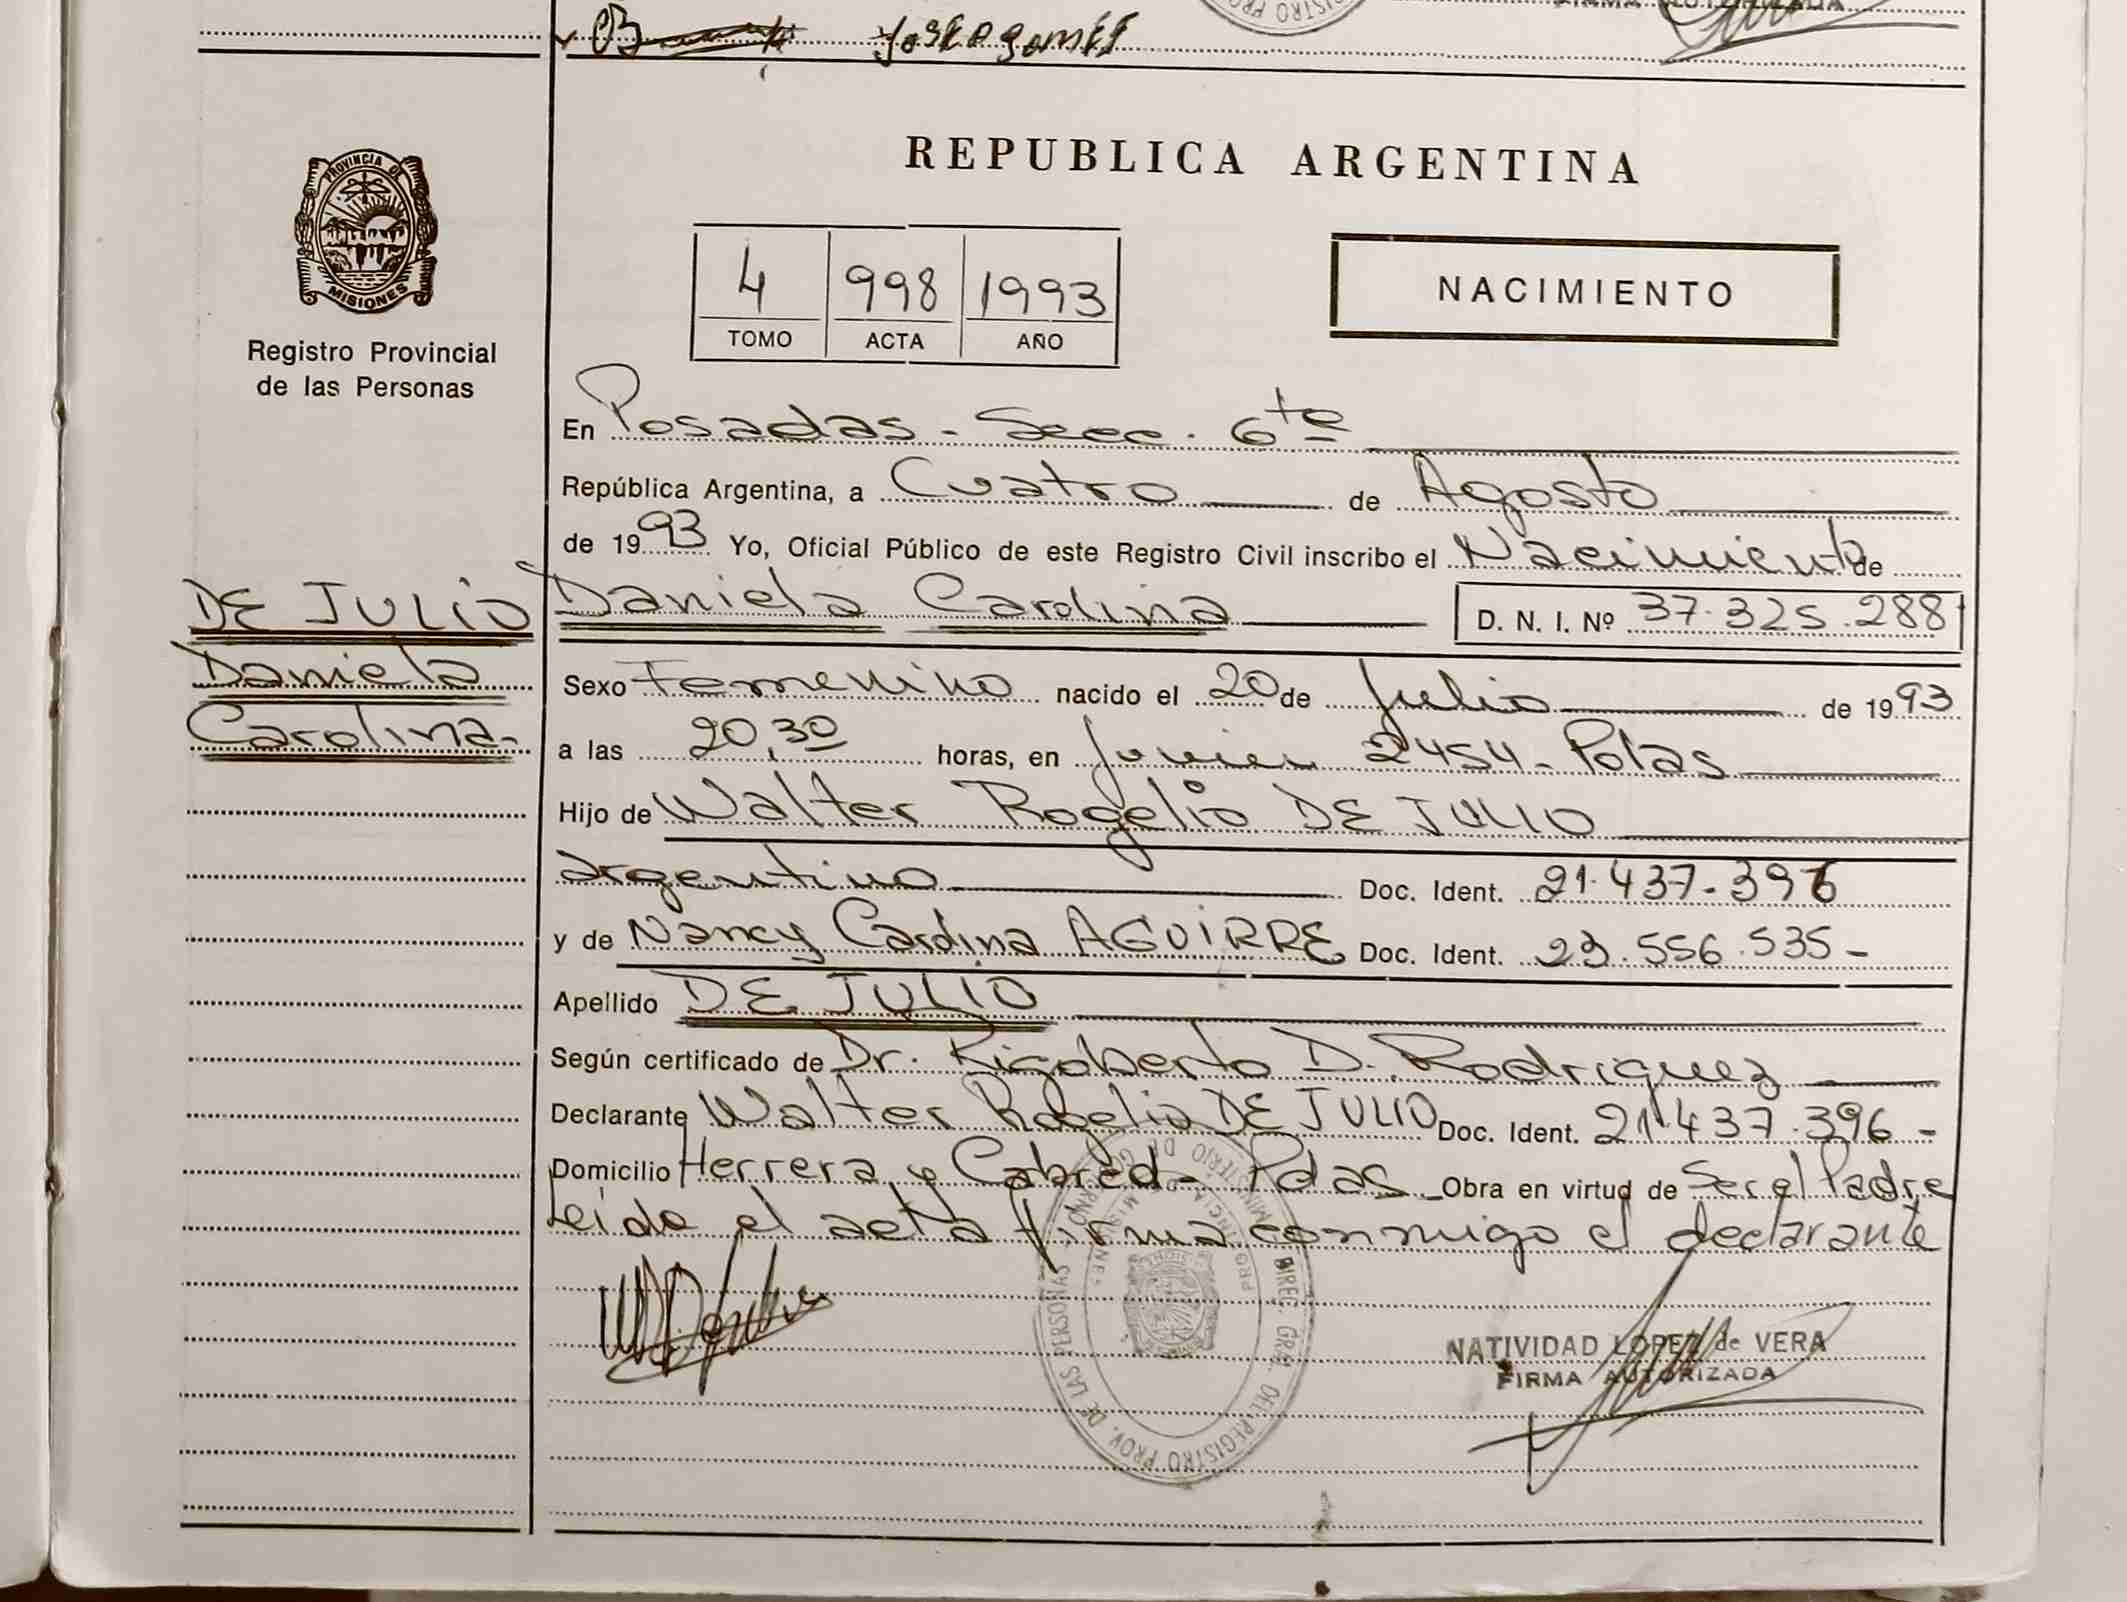 José A Gomez
REPUBLICA ARGENTINA
PROVINCIA DE
MISIONES
Registro Provincial
de las Personas
4 998 1993
TOMO ACTA AÑO
NACIMIENTO
En Posadas - Secc. 6ta
República Argentina, a Cuatro de Agosto
de 1993 Yo, Oficial Público de este Registro Civil inscribo el Nacimiento de
DE JULIO
Daniela
Carolina.
Daniela Carolina D. N. I. Nº 37.325.288
Sexo Femenino nacido el 20 de Julio de 1993
a las 20,30 horas, en Junin 2454 - Pdas
Hijo de Walter Rogelio DE JULIO
argentino Doc. Ident. 21.437.396
y de Nancy Carolina AGUIRRE Doc. Ident. 23.556.535-
Apellido DE JULIO
Según certificado de Dr. Rigoberto D. Rodriguez
Declarante Walter Rogelio DE JULIO Doc. Ident. 21.437.396-
Domicilio Herrera y Cabred - Pdas Obra en virtud de Ser el Padre
Leida el acta firma conmigo el declarante
DIREC. GRAL. DEL REGISTRO PROV. DE LAS PERSONAS
NATIVIDAD LOPEZ de VERA
FIRMA AUTORIZADA